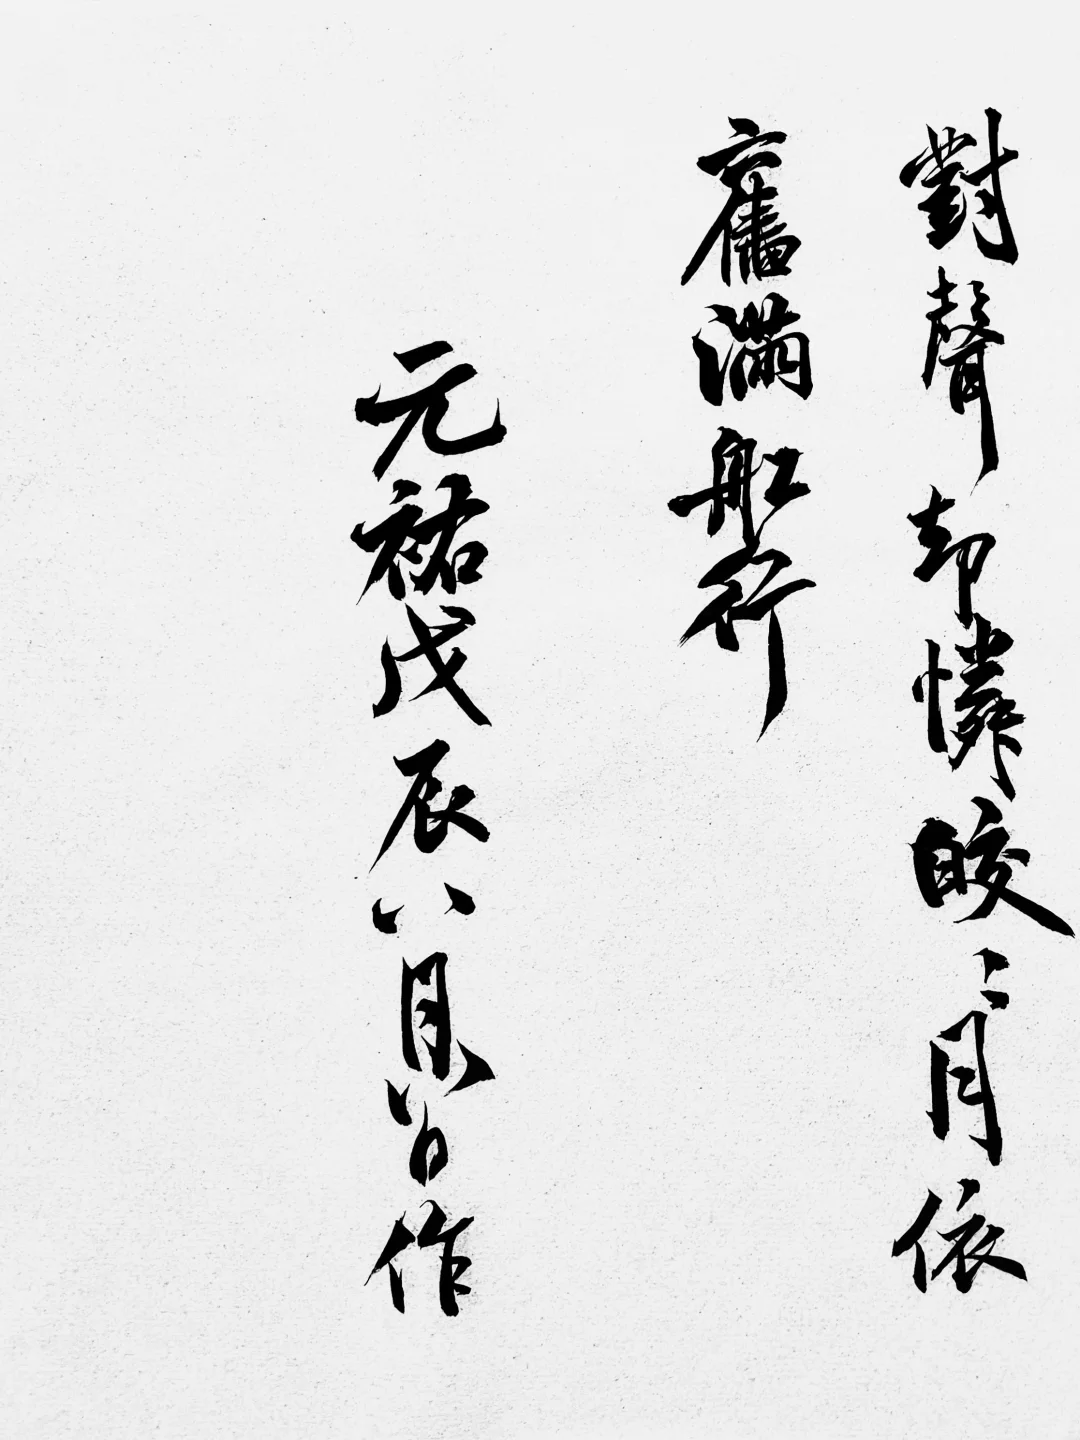 對聲却憐皎〻月依
舊滿舡行
元祐戊辰八月八日作